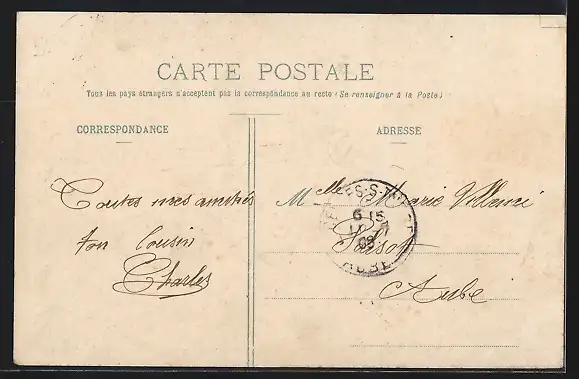 CARTE POSTALE
Tous les pays étrangers n'acceptent pas la correspondance au recto (Se renseigner à la Poste)
CORRESPONDANCE
ADRESSE
Toutes mes amitiés
ton Cousin
Charles
Melle Marie
6 15
AUBE
Aube